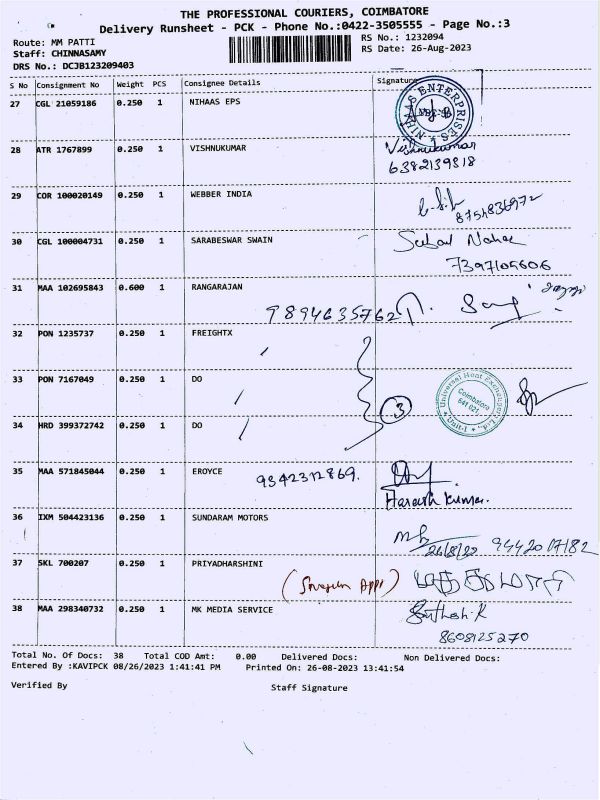 THE PROFESSIONAL COURIERS, COIMBATORE
Delivery Runsheet - PCK - Phone No.:0422-3505555 - Page No.:3
Route: MM PATTI
Staff: CHINNASAMY
DRS No.: DCJB123209403
RS No.: 1232094
RS Date: 26-Aug-2023
S No Consignment No Weight PCS Consignee Details Signature
27 CGL 21059186 0.250 1 NIHAAS EPS
NIHAAS ENTERPRISES
28 ATR 1767899 0.250 1 VISHNUKUMAR Vishnukumar
6382139818
29 COR 100020149 0.250 1 WEBBER INDIA
8754836972
30 CGL 100004731 0.250 1 SARABESWAR SWAIN
7397105606
31 MAA 102695843 0.600 1 RANGARAJAN
9894635762
32 PON 1235737 0.250 1 FREIGHTX
33 PON 7167049 0.250 1 DO
Universal Heat Exchangers Ltd.,
Coimbatore
641 021
Unit-I
34 HRD 399372742 0.250 1 DO
3
35 MAA 571845044 0.250 1 EROYCE 9342312869.
Haresh Kumar.
36 IXM 504423136 0.250 1 SUNDARAM MOTORS
26/8/22 9442007182
37 SKL 700207 0.250 1 PRIYADHARSHINI
38 MAA 298340732 0.250 1 MK MEDIA SERVICE Santhosh.K
8608125270
Total No. Of Docs: 38 Total COD Amt: 0.00 Delivered Docs: Non Delivered Docs:
Entered By :KAVIPCK 08/26/2023 1:41:41 PM Printed On: 26-08-2023 13:41:54
Verified By Staff Signature